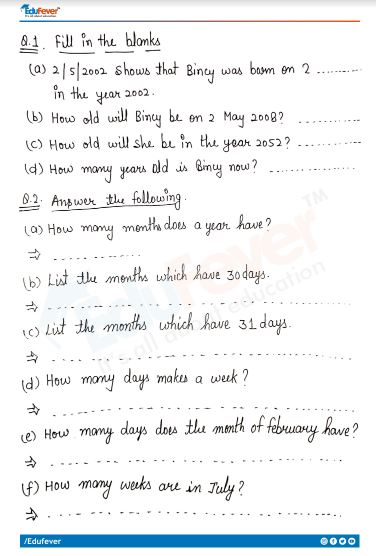 EduFever
It's all about education
Q.1 Fill in the blanks
(a) 2/5/2002 shows that Bincy was born on 2 ............
in the year 2002.
(b) How old will Bincy be on 2 May 2008? ............
(c) How old will she be in the year 2052? ............
(d) How many years old is Bincy now? ............
Q.2. Answer the following.
(a) How many months does a year have?
⇒ ............
(b) List the months which have 30 days.
⇒ ............
(c) List the months which have 31 days.
⇒ ............
(d) How many days makes a week?
⇒ ............
(e) How many days does the month of february have?
⇒ ............
(f) How many weeks are in July?
⇒ ............
EduFever TM
It's all about education
/Edufever